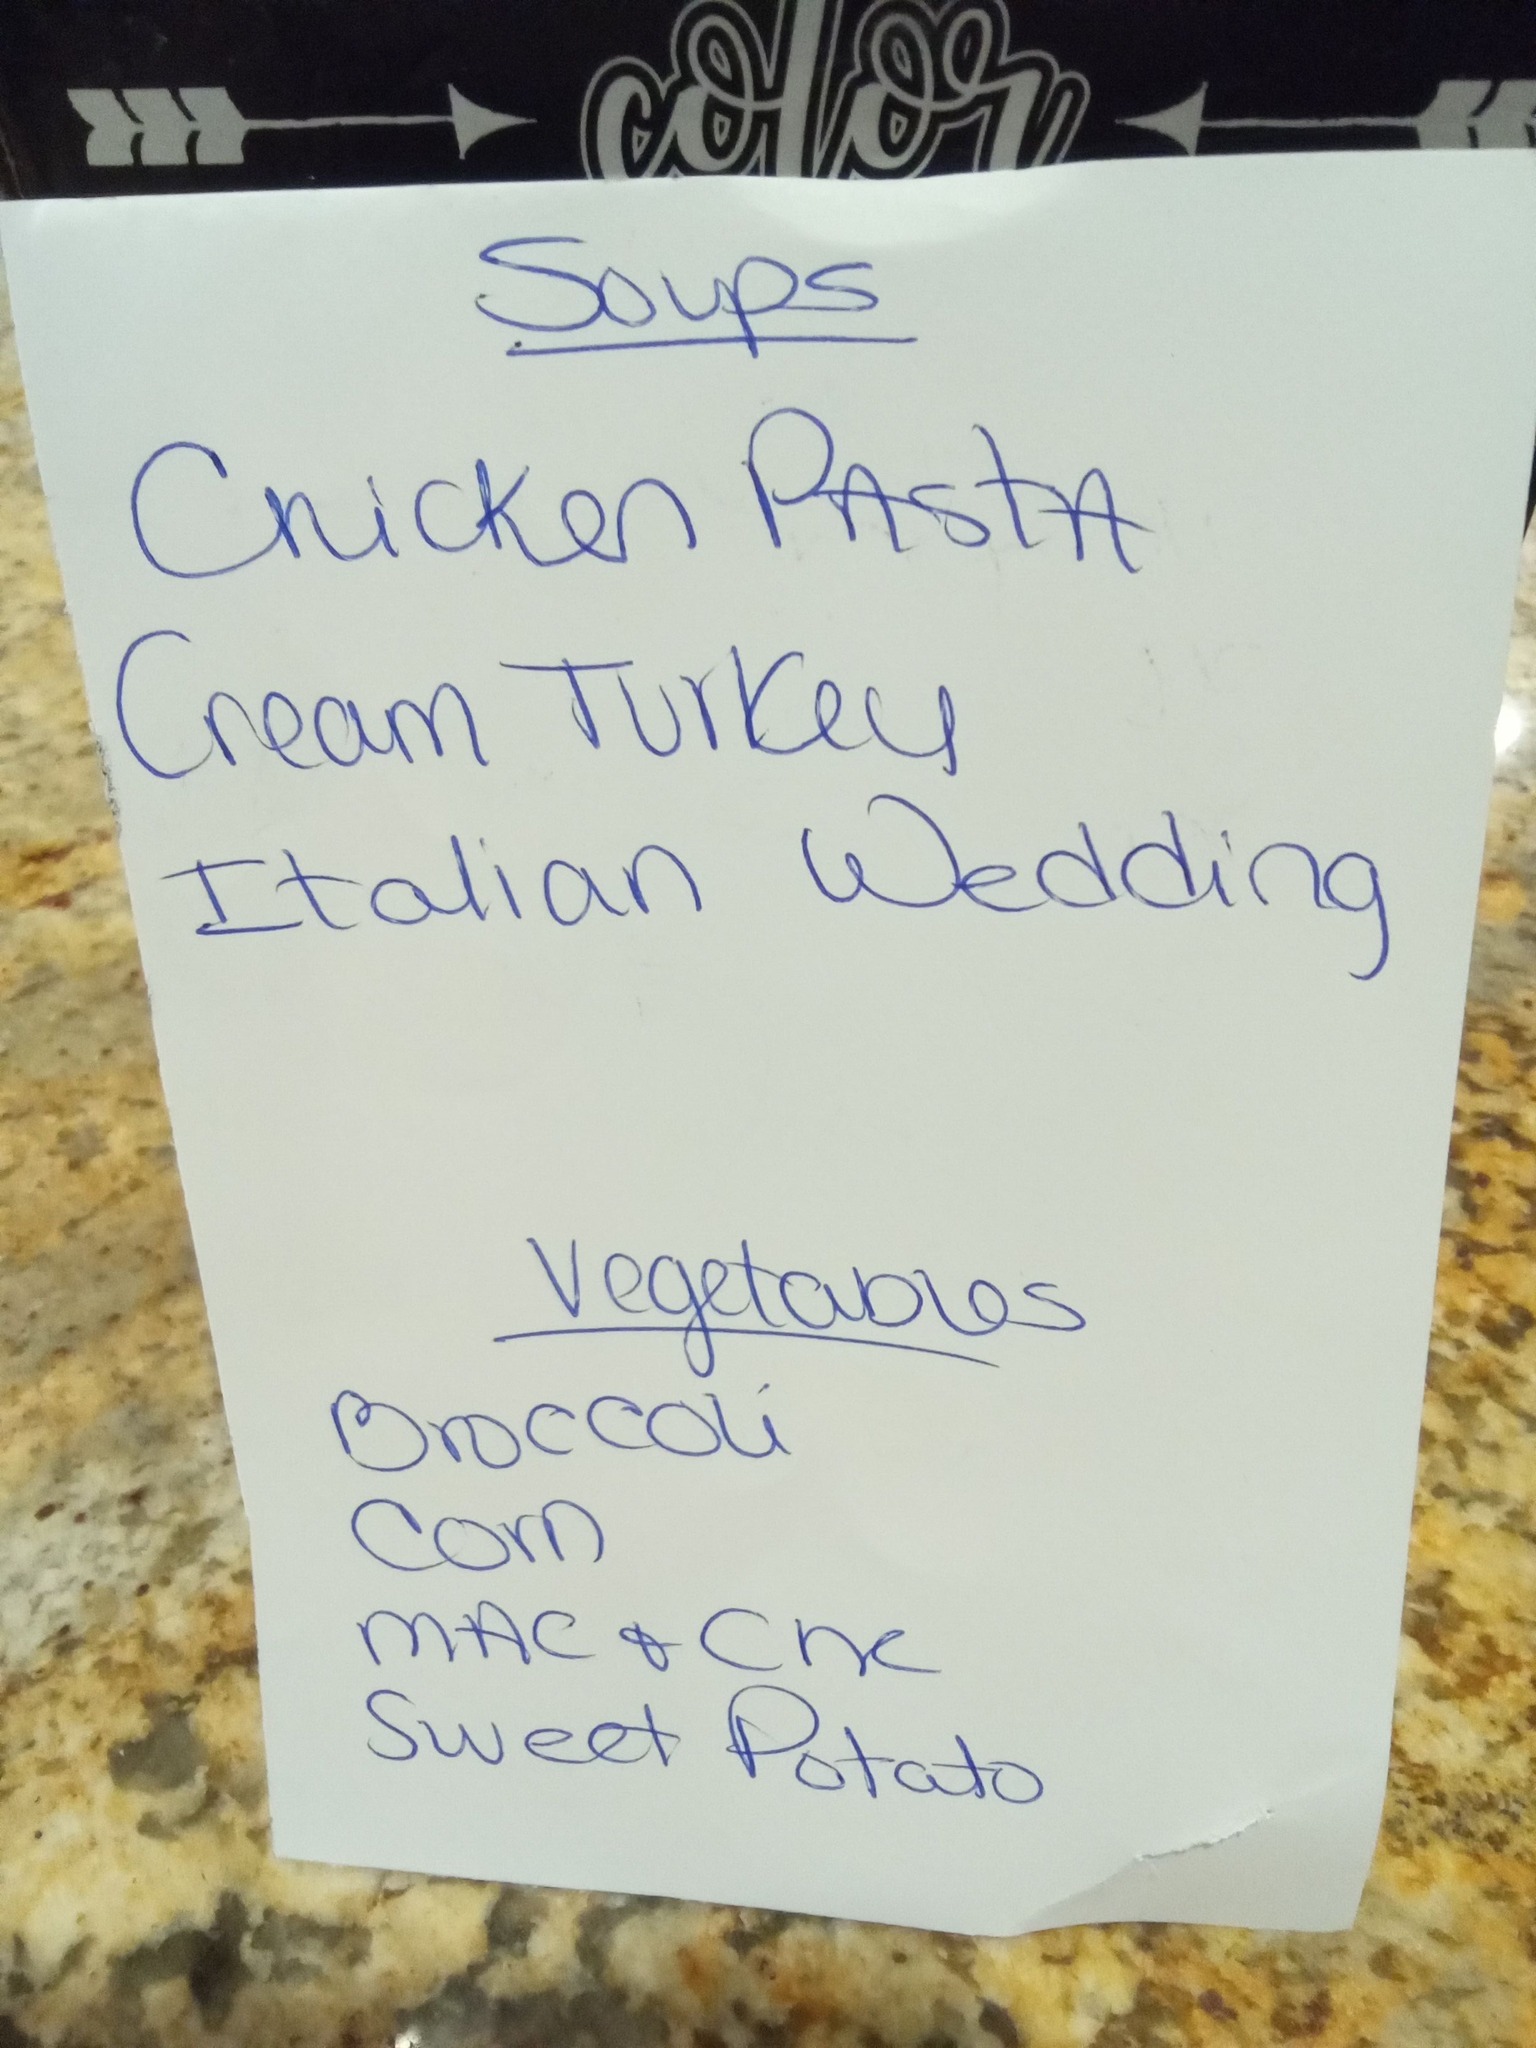 color
Soups
Chicken PAstA
Cream Turkey
Italian Wedding
Vegetables
Broccoli
Corn
MAC & Che
Sweet Potato